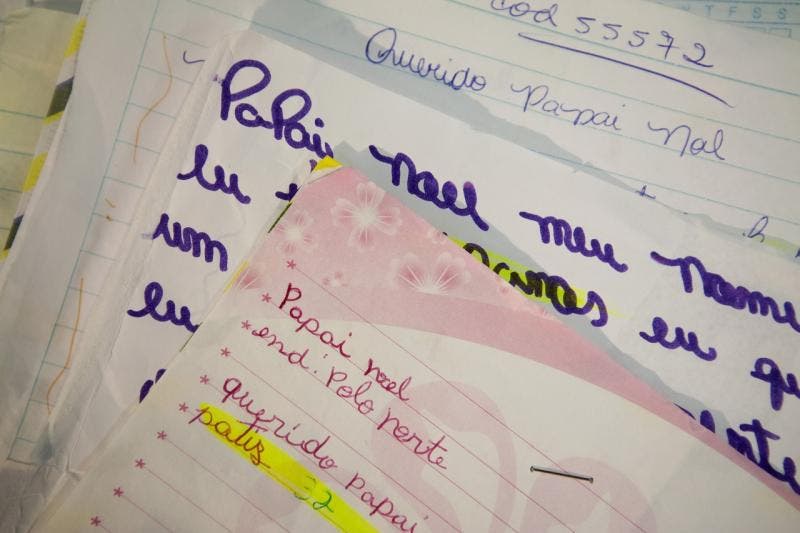 T F S S
cod 55572
Querido Papai Nol
Papai Nael meu nome
eu
um eu qu
eu
Papai noel
end: Polo norte
querido papai
patiz 32